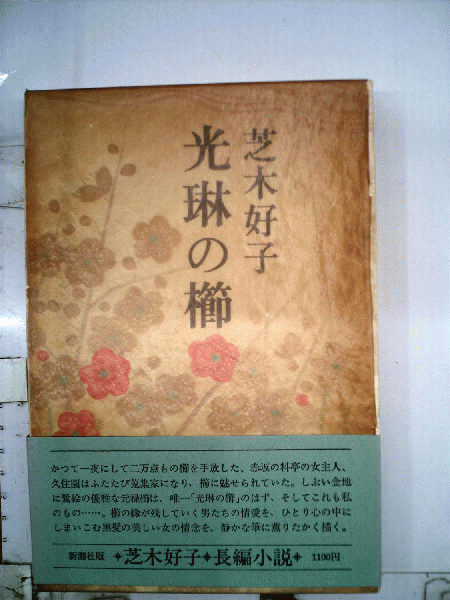 芝木好子
光琳の櫛
かつて一夜にして二万点もの櫛を手放した、赤坂の料亭の女主人、
久住園はふたたび蒐集家になり、櫛に魅せられていた。しぶい金地
に鷺絵の優雅な元禄櫛は、唯一「光琳の櫛」のはず、そしてこれも私
のもの……。櫛の縁が残していく男たちの情愛を、ひとり心の中に
しまいこむ黒髪の美しい女の情念を、静かな筆に薫りたかく描く。
新潮社版 ✦芝木好子✦長編小説✦ 1100円